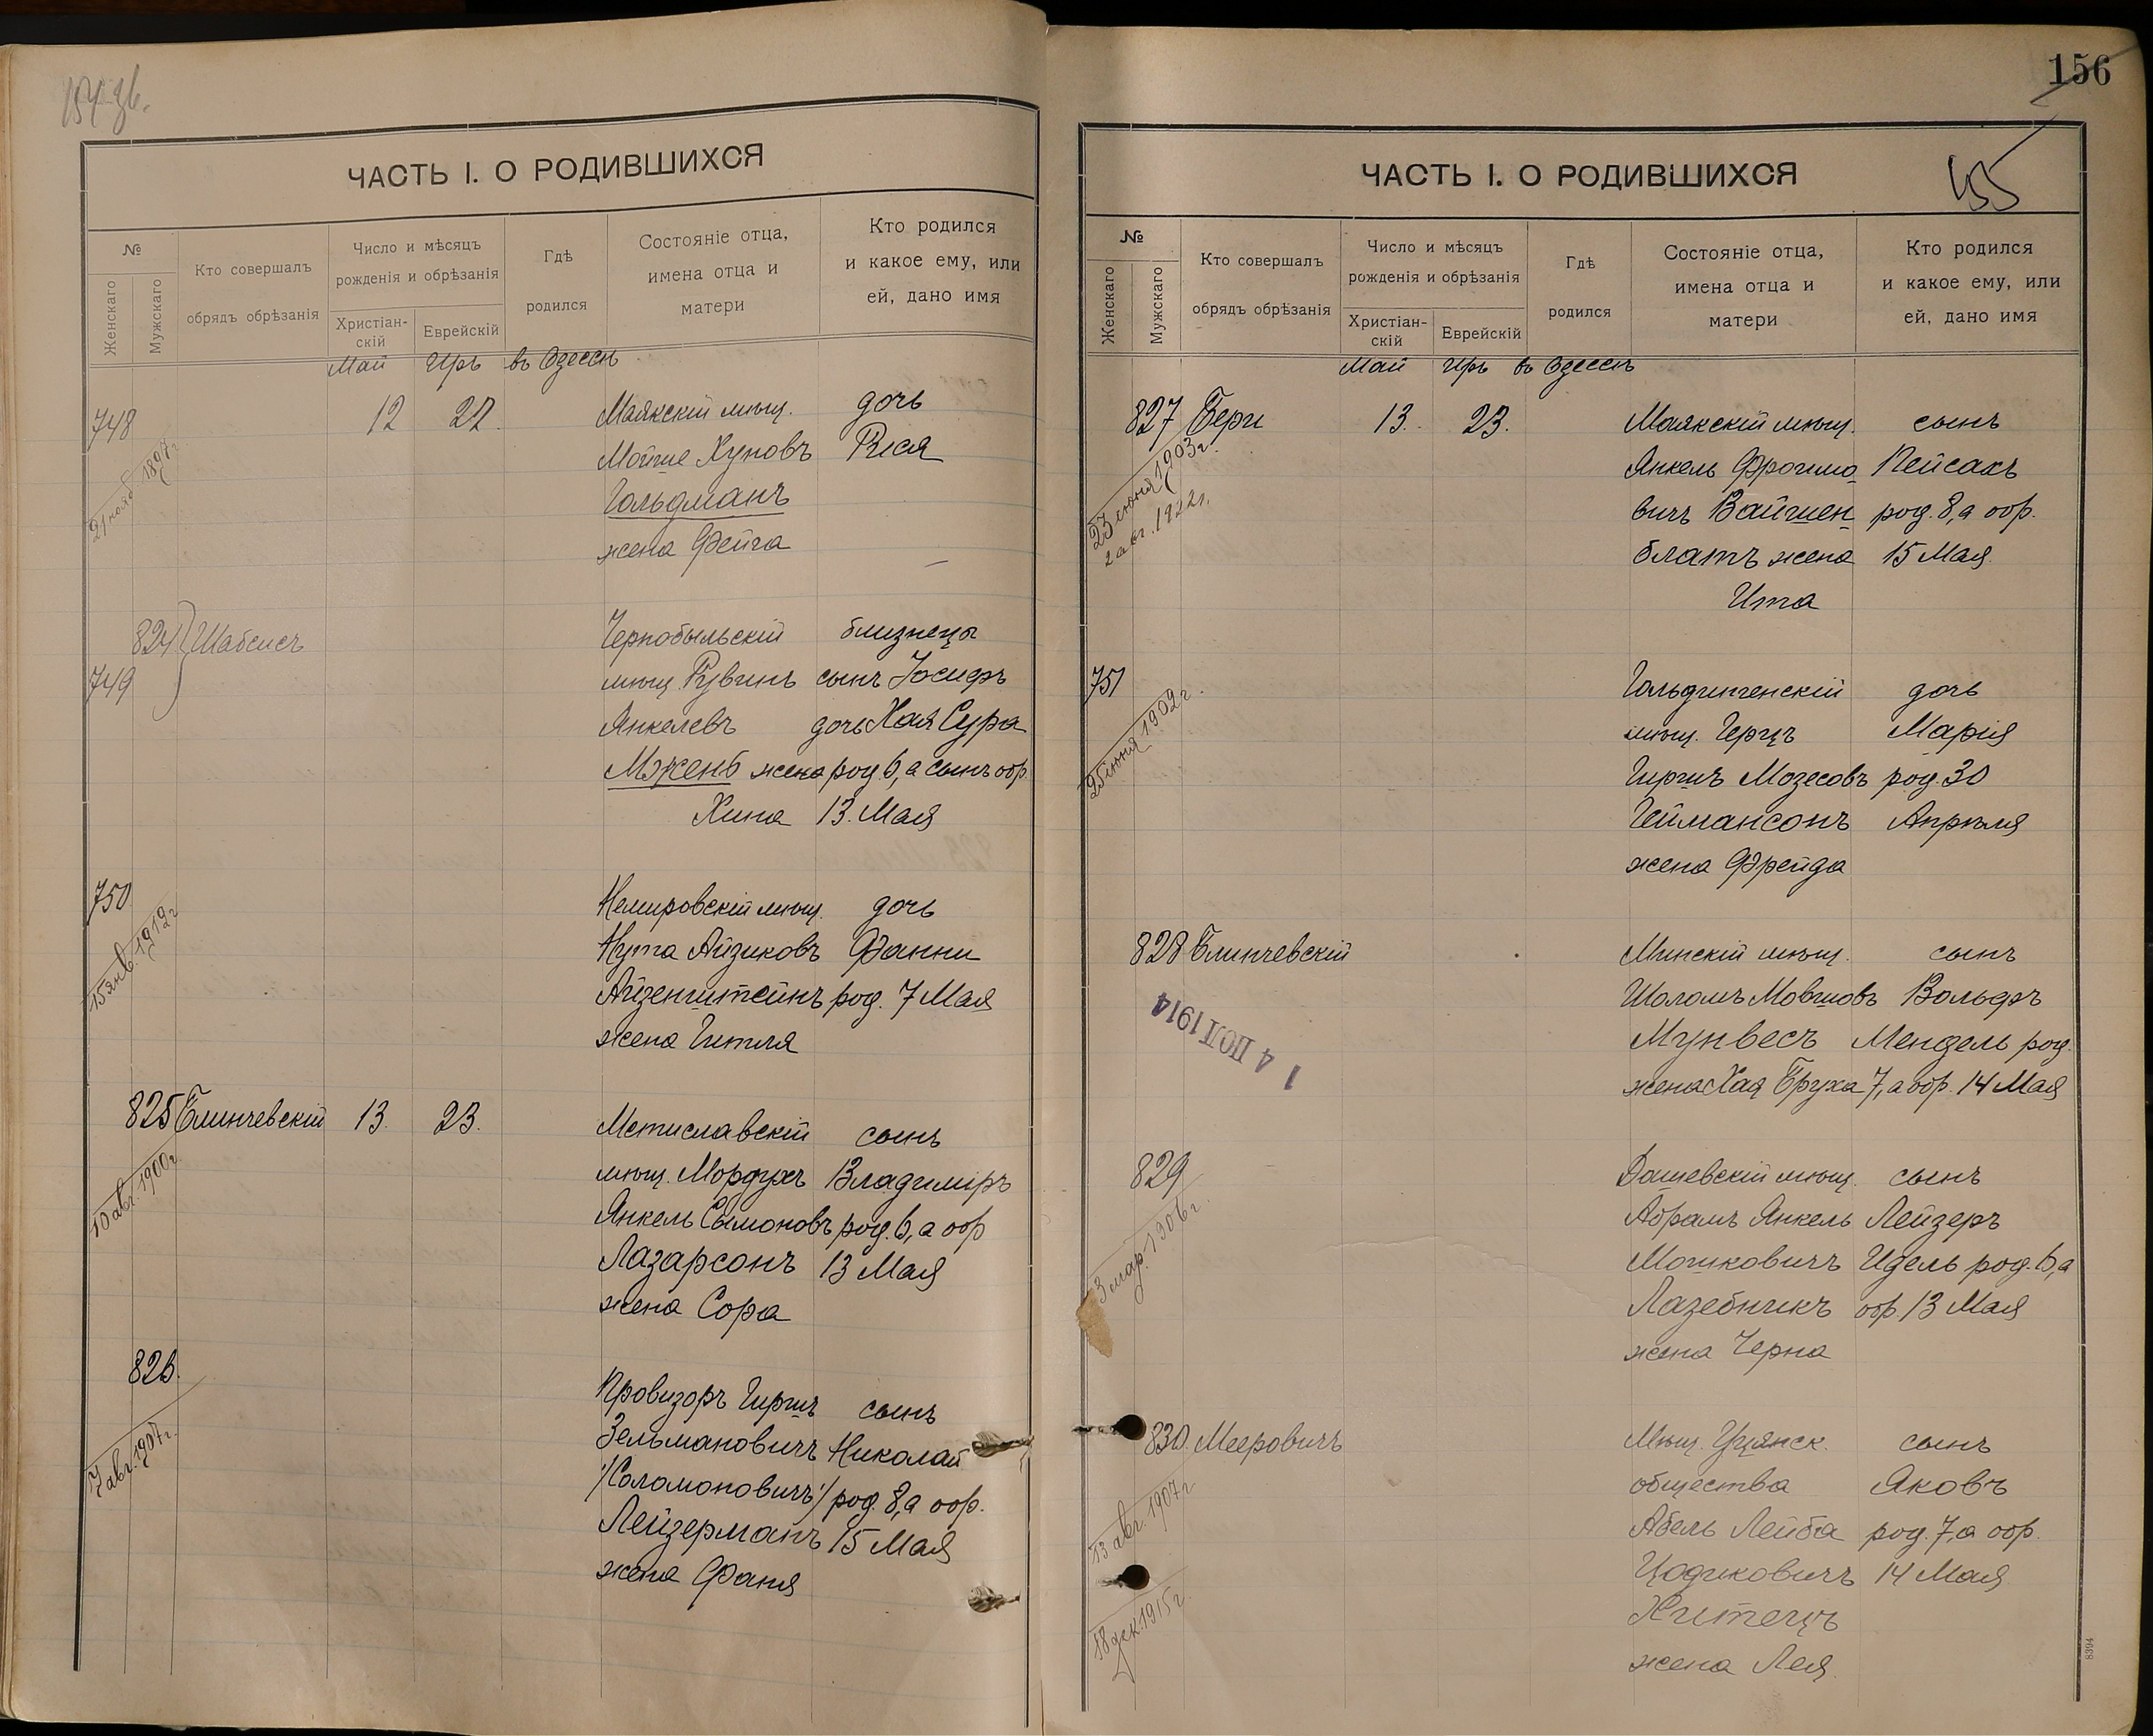 154 зв.
ЧАСТЬ I. О РОДИВШИХСЯ
№
Женскаго
Мужскаго
Кто совершалъ
обрядъ обрѣзанія
Число и мѣсяцъ
рожденія и обрѣзанія
Христіан-
скій
Еврейскій
Гдѣ
родился
Состояніе отца,
имена отца и
матери
Кто родился
и какое ему, или
ей, дано имя
Май Иръ въ Одессѣ
748 12 22. Маякскій мѣщ. дочь
Мойше Хуновъ Рися
Гольдманъ
жена Фейга
824 Шабсисъ Чернобыльскій близнецы
749 мѣщ. Рувинъ сынъ Іосифъ
Янкелевъ дочь Хая Сура
жена род. 6, а сынъ обр.
Хина 13. Мая
750 Немировскій мѣщ. дочь
15 янв. 1912 г
Нута Айзиковъ Фанни
Айзенштейнъ род. 7 Мая
жена Гитля
825 Блинчевскій 13. 23. Мстиславскій сынъ
10 авг. 1900 г.
мѣщ. Мордухъ Владиміръ
Янкель Сымоновъ род. 6, а обр
Лазарсонъ 13 Мая
жена Сора
826. Провизоръ Гиршъ сынъ
7 авг. 1907 г.
Зельмановичъ Николай
/Соломоновичъ/ род. 8, а обр.
Лейзерманъ 15 Мая
жена Фаня
156
155
ЧАСТЬ I. О РОДИВШИХСЯ
№
Женскаго
Мужскаго
Кто совершалъ
обрядъ обрѣзанія
Число и мѣсяцъ
рожденія и обрѣзанія
Христіан-
скій
Еврейскій
Гдѣ
родился
Состояніе отца,
имена отца и
матери
Кто родился
и какое ему, или
ей, дано имя
Май Иръ въ Одессѣ
827 Бери 13. 23. Маякскій мѣщ. сынъ
23 июня 1903 г.
2 авг. 1922 г.
Янкель Фроимо Пейсахъ
вичъ Вайшен род. 8, а обр.
блатъ жена 15 Мая
Ита
751 Гольдингенскій дочь
25 июня 1902 г.
мѣщ. Герцъ Марія
Гиршъ Мозесовъ род. 30
Геймансонъ Апрѣля
жена Фрейда
828 Блинчевскій Минскій мѣщ. сынъ
Шоломъ Мовшовъ Вольфъ
14 1914
Мунвесъ Мендель род.
жена Хая Бруха 7, а обр. 14 Мая
829 Дашевскій мѣщ. сынъ
3 мар. 1906 г.
Абрамъ Янкель Лейзеръ
Мошковичъ Идель род. 6, а
Лазебникъ обр 13 Мая
жена Черна
830 Мееровичъ Мѣщ. сынъ
общества Яковъ
13 авг. 1907 г
Абель Лейба род. 7, а обр.
Цодиковичъ 14 Мая
18 дек. 1915 г.
Хитецъ
жена Лея.
8394